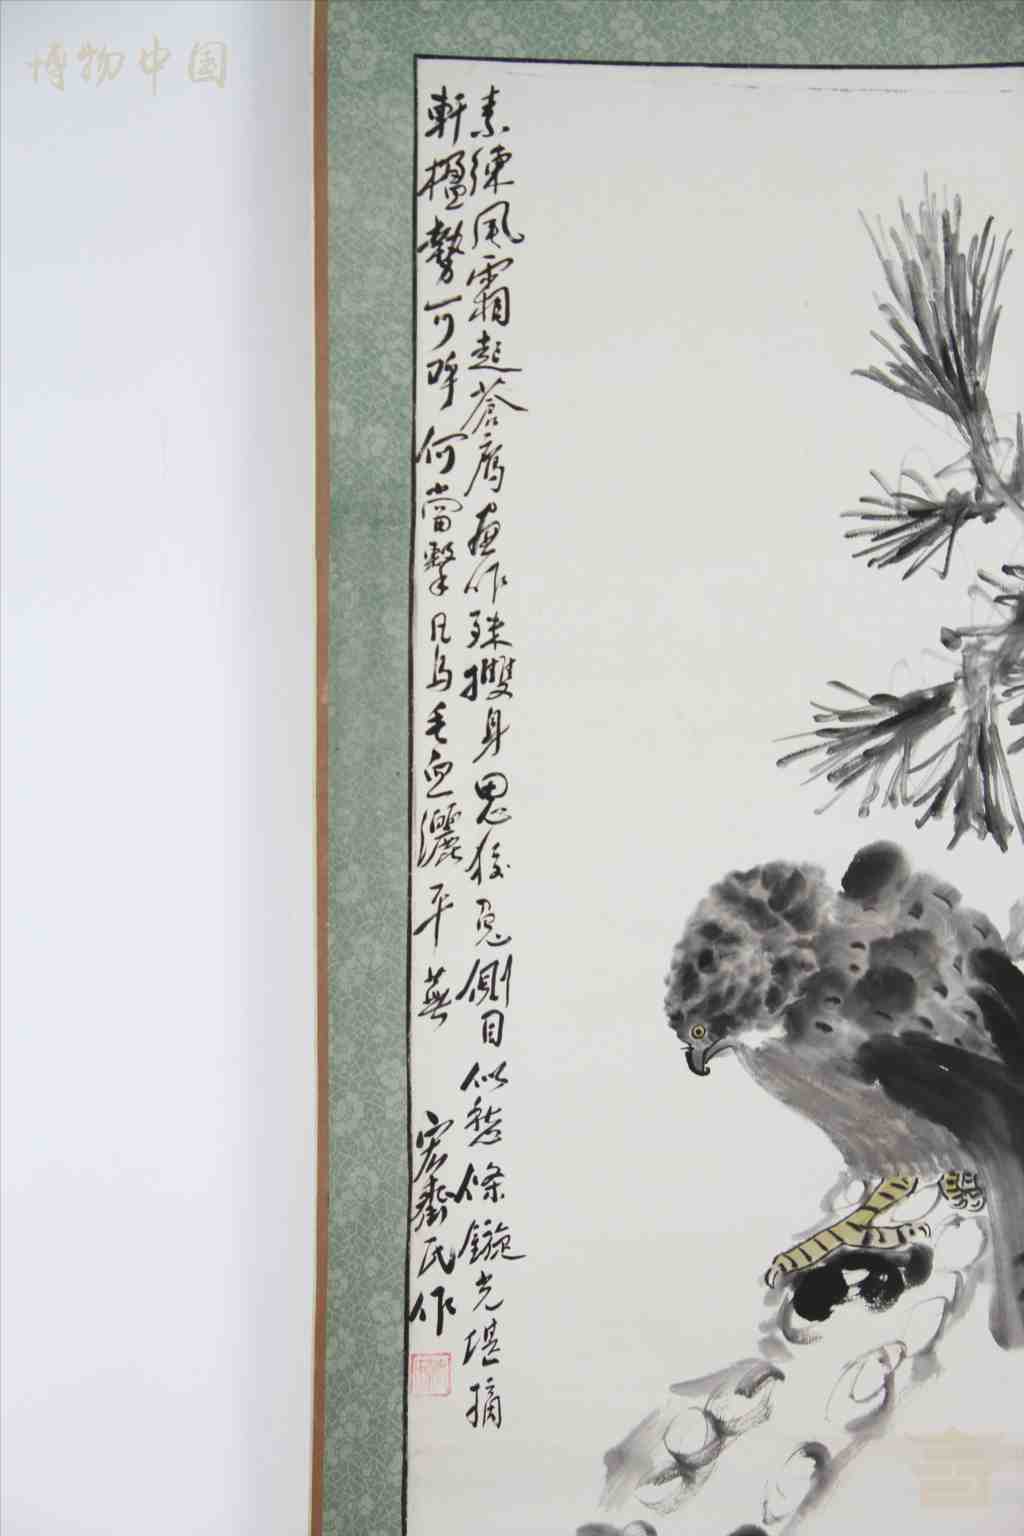 博物中国
素練風霜起蒼鷹畫作殊㩳身思狡兔側目似愁絛鏇光堪摘
軒楹勢可呼何當擊凡鳥毛血灑平蕪
宏齋民作